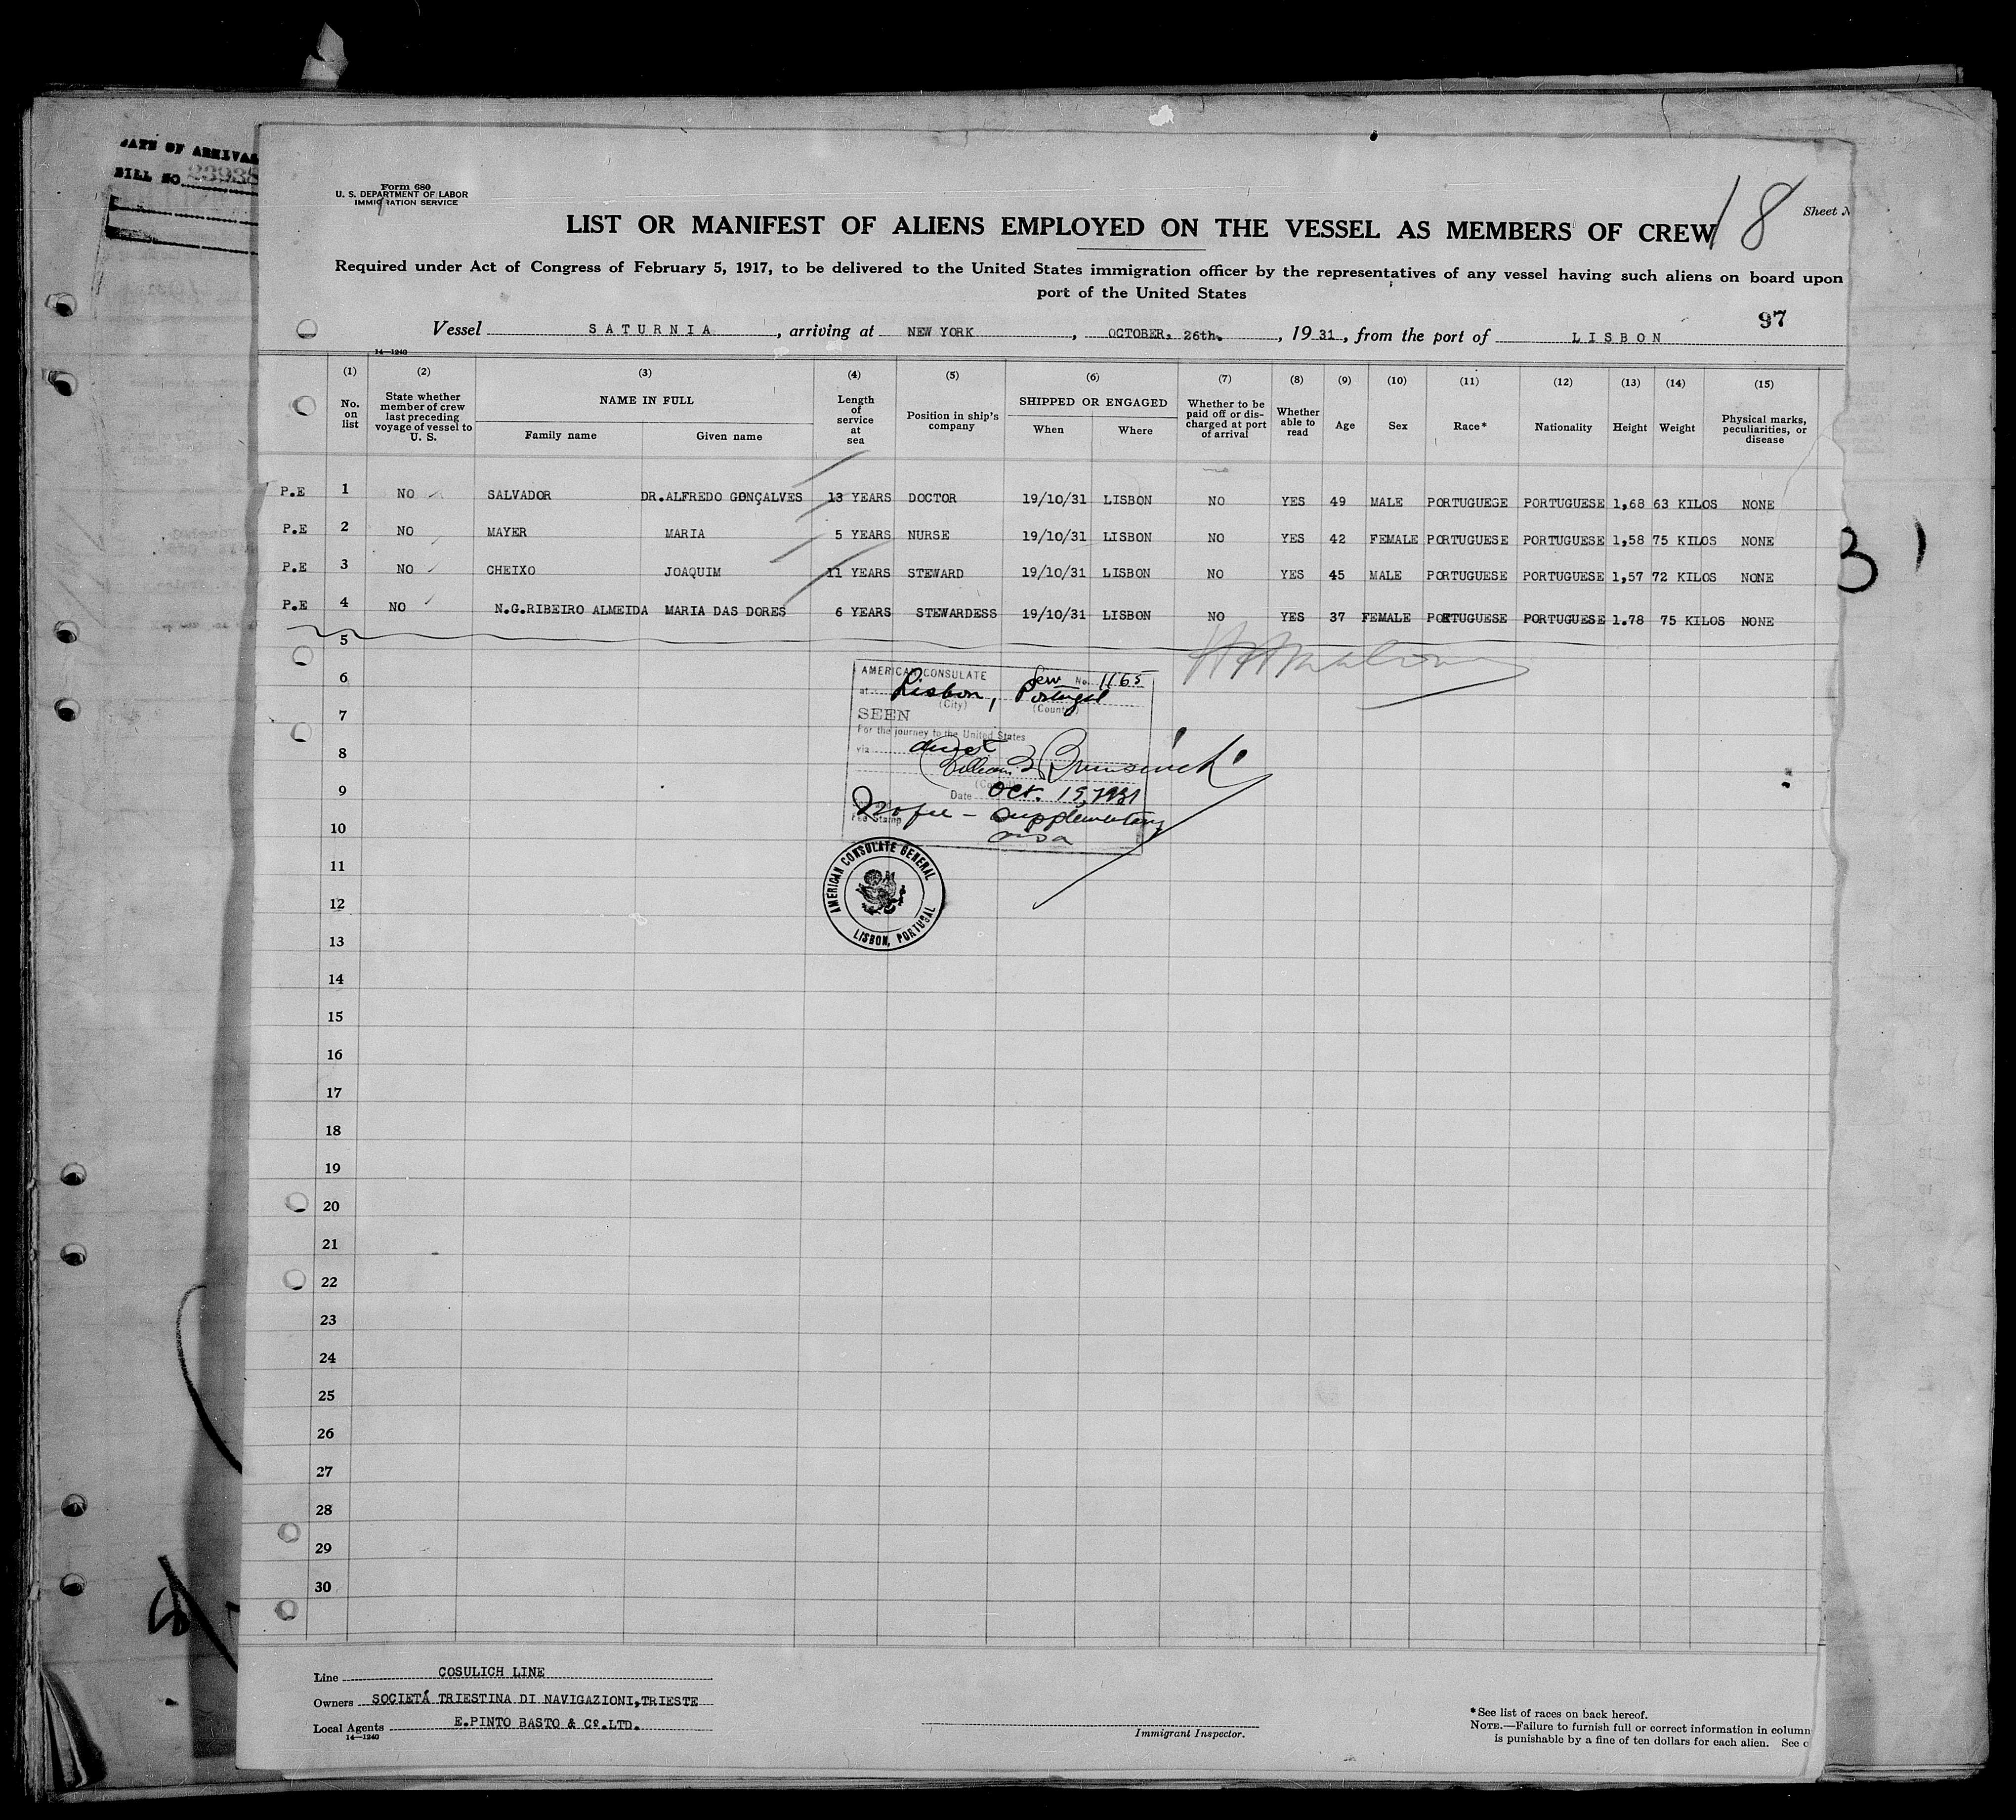 DATE OF ARRIVAL
BILL NO. 23938
Form 680
U. S. DEPARTMENT OF LABOR
IMMIGRATION SERVICE
LIST OR MANIFEST OF ALIENS EMPLOYED ON THE VESSEL AS MEMBERS OF CREW
18
Sheet N
Required under Act of Congress of February 5, 1917, to be delivered to the United States immigration officer by the representatives of any vessel having such aliens on board upon
port of the United States
97
Vessel SATURNIA, arriving at NEW YORK, OCTOBER, 26th., 1931, from the port of LISBON
14—1240
(1) (2) (3) (4) (5) (6) (7) (8) (9) (10) (11) (12) (13) (14) (15)
No. on list
State whether member of crew last preceding voyage of vessel to U. S.
NAME IN FULL
Family name
Given name
Length of service at sea
Position in ship's company
SHIPPED OR ENGAGED
When
Where
Whether to be paid off or discharged at port of arrival
Whether able to read
Age
Sex
Race*
Nationality
Height
Weight
Physical marks, peculiarities, or disease
P.E 1 NO SALVADOR DR.ALFREDO GONÇALVES 13 YEARS DOCTOR 19/10/31 LISBON NO YES 49 MALE PORTUGUESE PORTUGUESE 1,68 63 KILOS NONE
P.E 2 NO MAYER MARIA 5 YEARS NURSE 19/10/31 LISBON NO YES 42 FEMALE PORTUGUESE PORTUGUESE 1,58 75 KILOS NONE
P.E 3 NO CHEIXO JOAQUIM 11 YEARS STEWARD 19/10/31 LISBON NO YES 45 MALE PORTUGUESE PORTUGUESE 1,57 72 KILOS NONE
P.E 4 NO N.G.RIBEIRO ALMEIDA MARIA DAS DORES 6 YEARS STEWARDESS 19/10/31 LISBON NO YES 37 FEMALE PORTUGUESE PORTUGUESE 1.78 75 KILOS NONE
31
5
6
7
8
9
10
11
12
13
14
15
16
17
18
19
20
21
22
23
24
25
26
27
28
29
30
AMERICAN CONSULATE
No. 1165
at Lisbon, Portugal
(City) (Country)
SEEN
For the journey to the United States
via direct
Date Oct. 15, 1931
No fee - supplementary
visa
Fee Stamp
AMERICAN CONSULATE GENERAL
LISBON, PORTUGAL
Line COSULICH LINE
Owners SOCIETÁ TRIESTINA DI NAVIGAZIONI,TRIESTE
Local Agents E.PINTO BASTO & Cº.LTD.
14—1240
Immigrant Inspector.
*See list of races on back hereof.
NOTE.—Failure to furnish full or correct information in column
is punishable by a fine of ten dollars for each alien. See